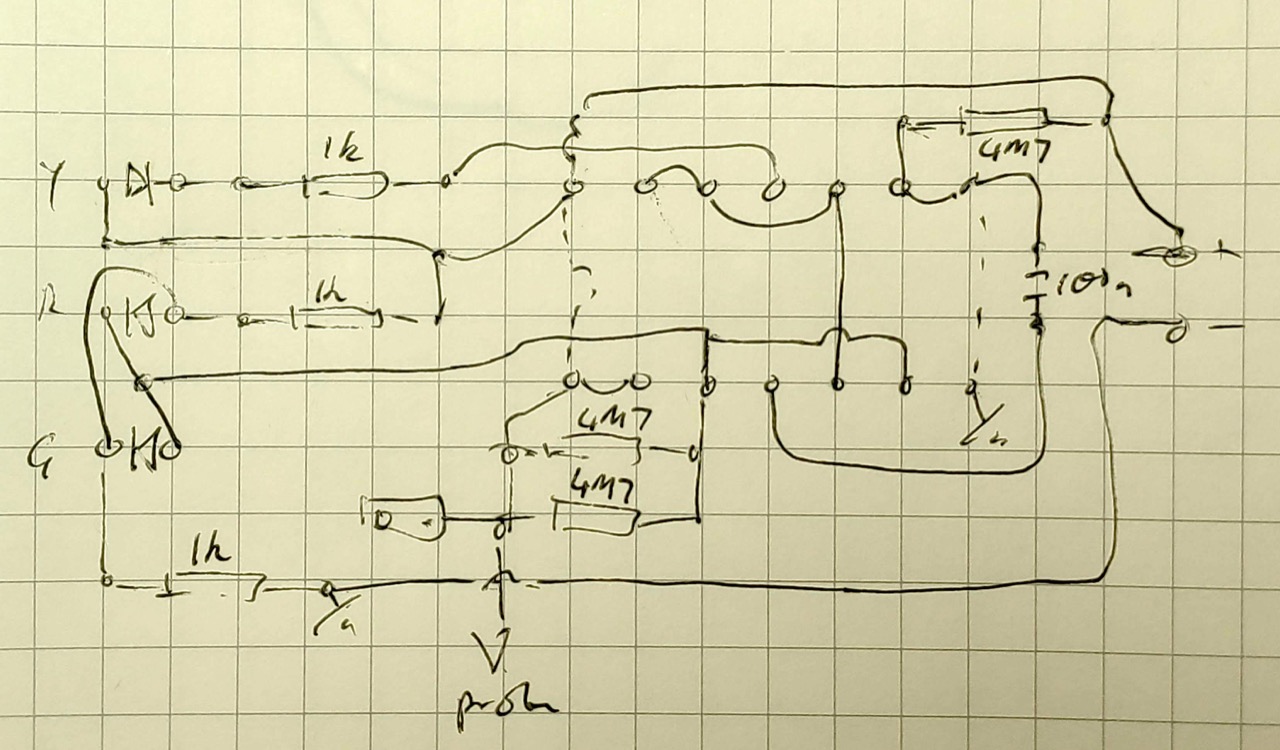 Y
1k
4M7
R
1k
100n
+
−
G
4M7
4M7
1k
a
a
probe